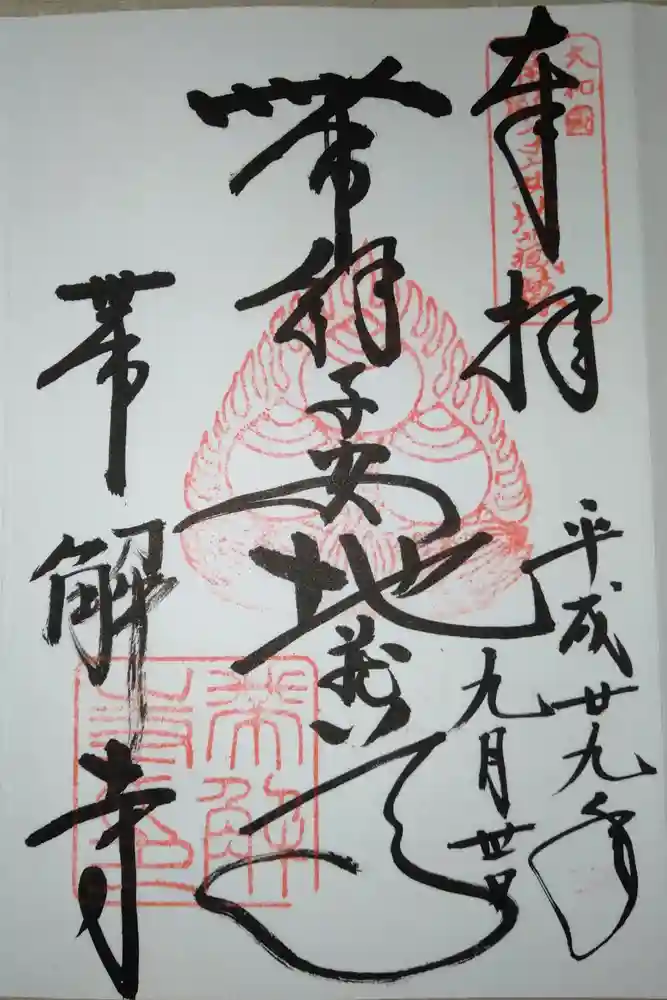 奉拝
大和國
平成廿九年
九月丗日
帯解子安地蔵尊
帯解寺
帯解寺印